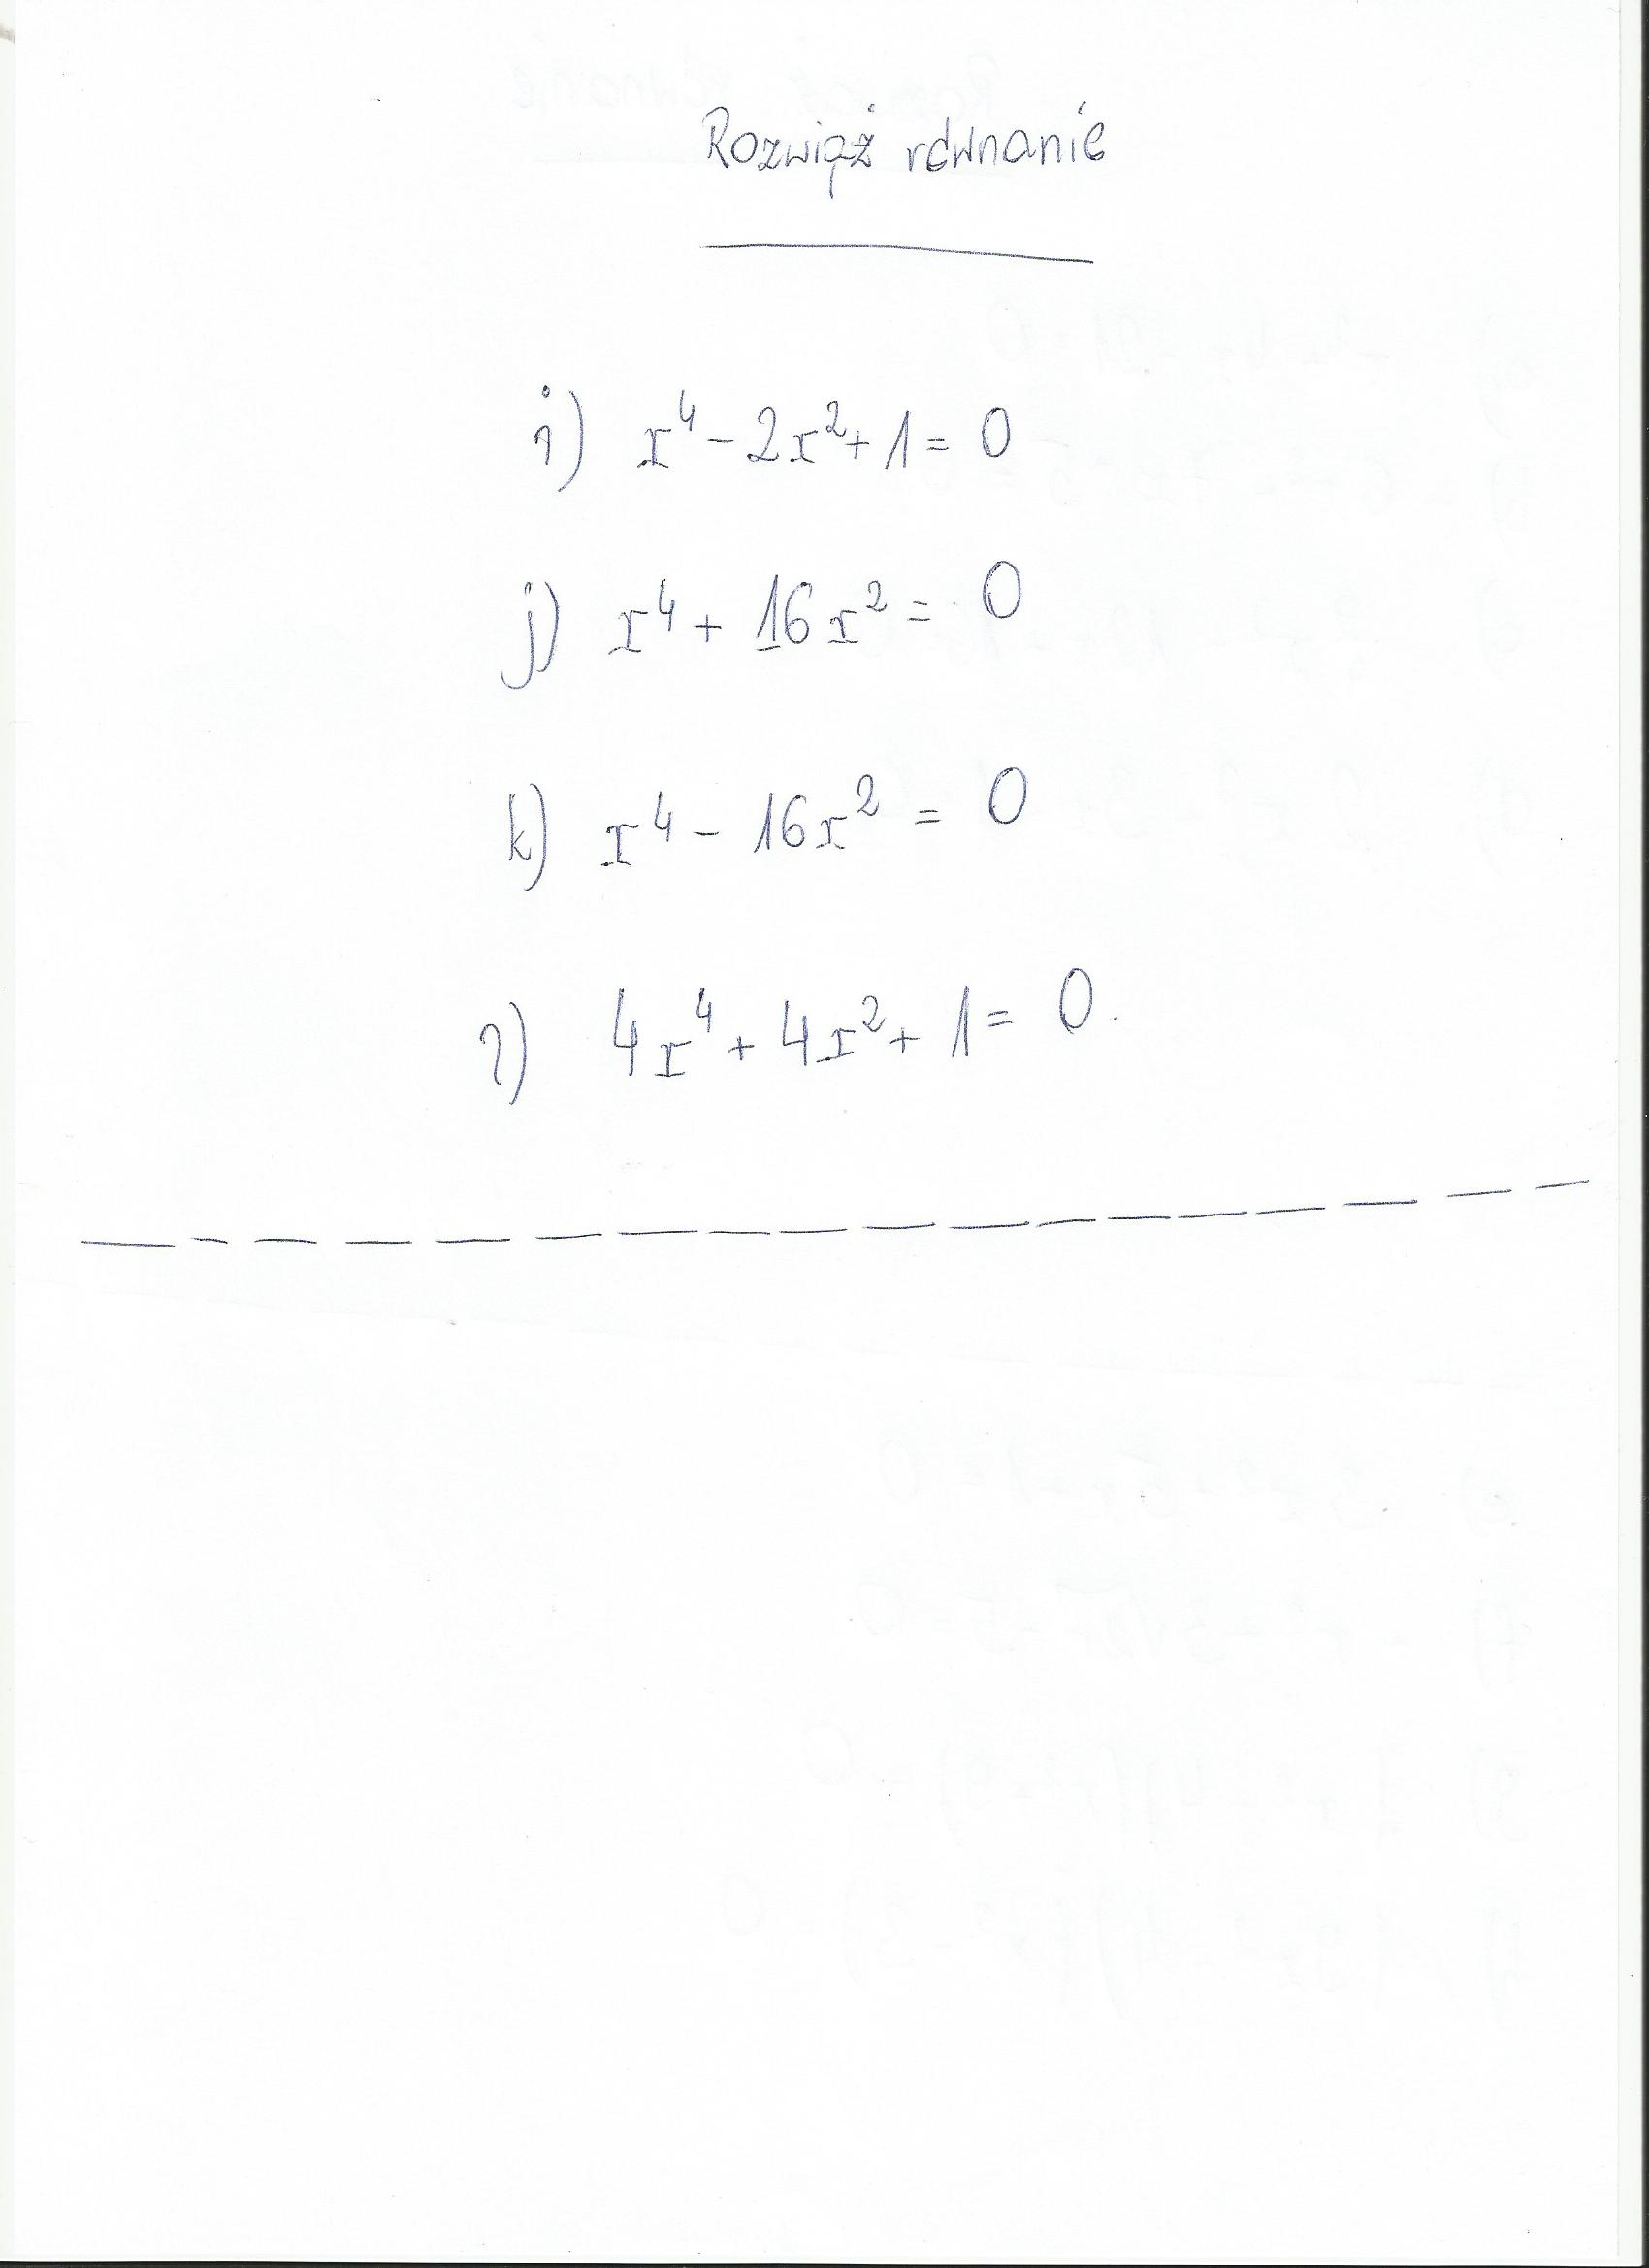 Rozwiąż równanie
i) x⁴ - 2x² + 1 = 0
j) x⁴ + 16x² = 0
k) x⁴ - 16x² = 0
l) 4x⁴ + 4x² + 1 = 0.